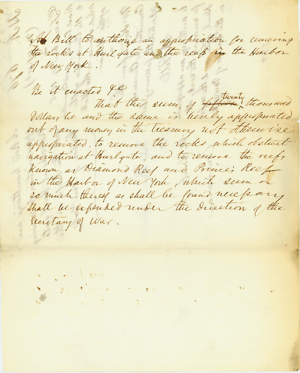 A Bill to authorize an appropriation for removing
the rocks at Hurl gate and the reefs in the Harbor
of New York.
Be it enacted &c
That the sum of fifteen twenty thousand
dollars be and the same is hereby appropriated
out of any money in the treasury not otherwise
appropriated, to remove the rocks which obstruct
navigation at Hurl gate, and to remove the reefs
known as Diamond Reef and Prince's Reef
in the Harbor of New York, which sum or
so much thereof as shall be found necessary
shall be expended under the direction of the
Secretary of War.